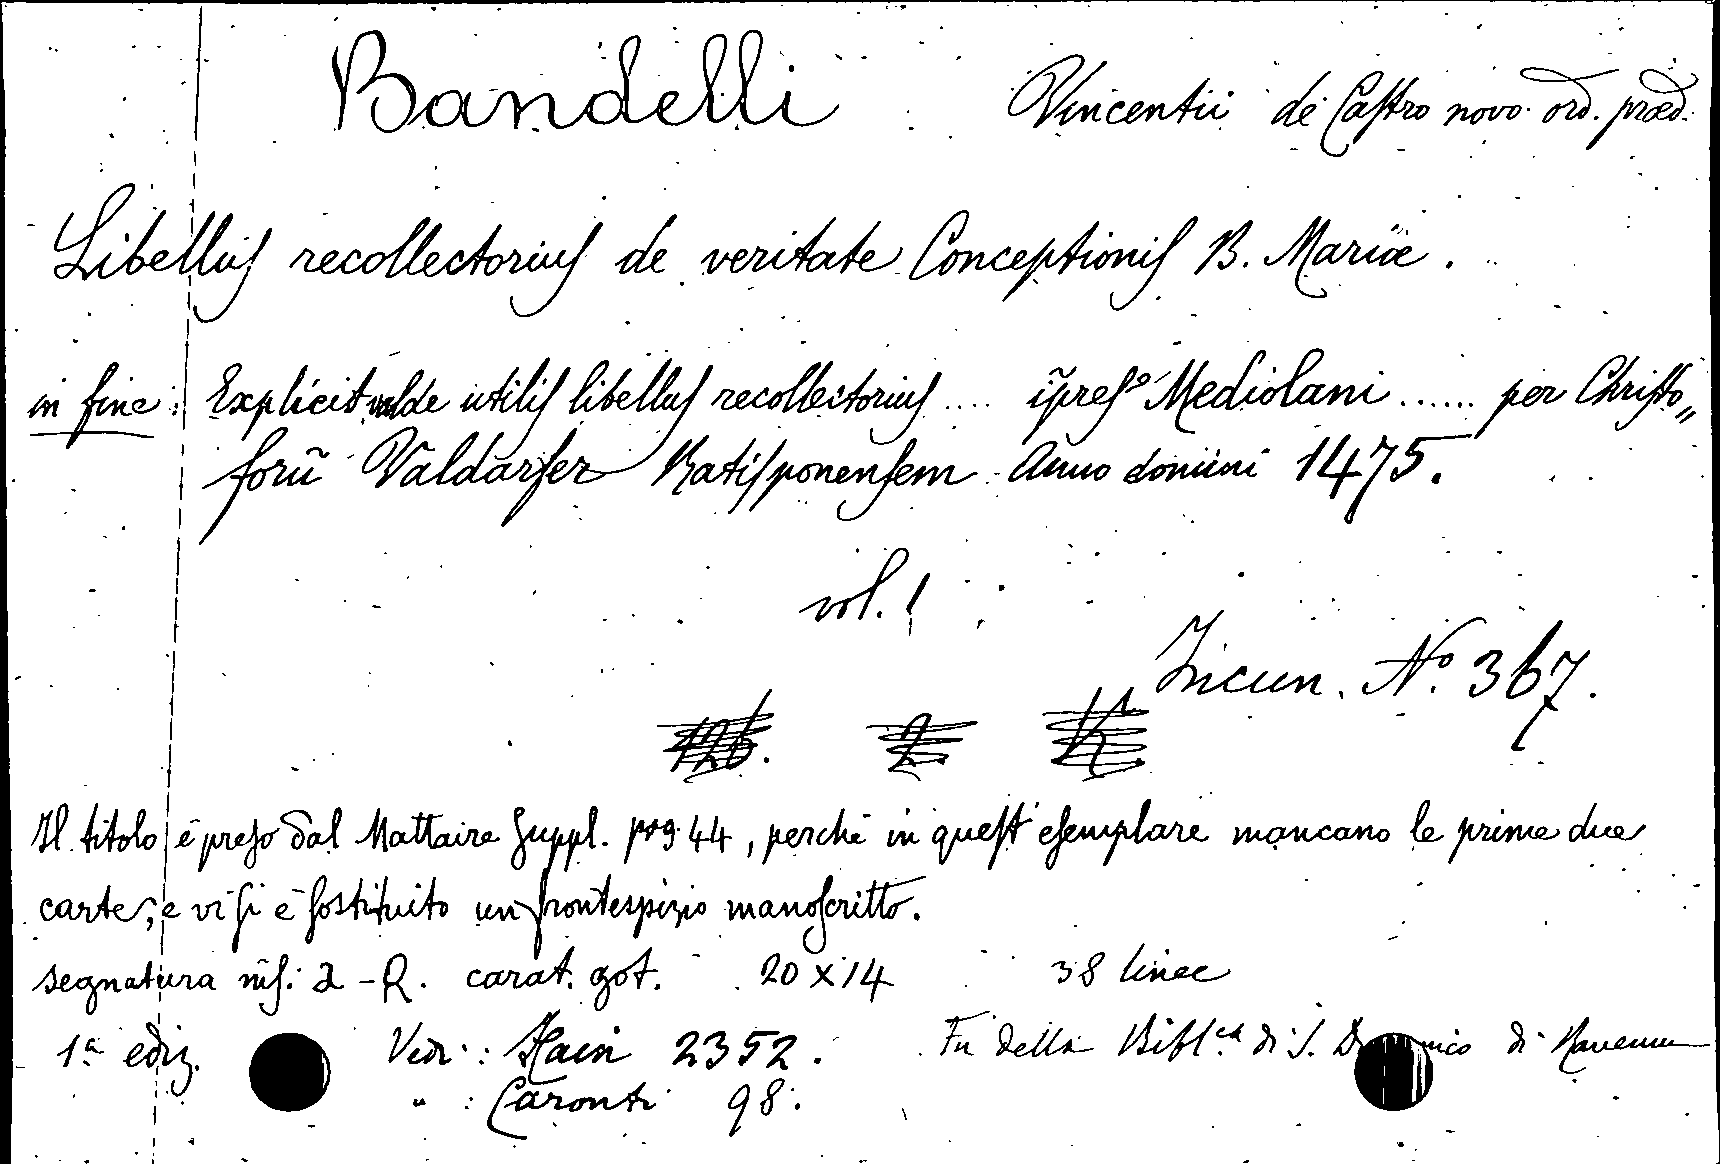 Bandelli Vincentii de Castro novo ord. præd.
Libellus recollectorius de veritate Conceptionis B. Mariæ.
in fine: Explicit valde utilis libellus recollectorius .... ĩpresº Mediolani ...... per Christo„
forũ Valdarfer Ratisponensem Anno domini 1475.
vol. 1
Incun. Nº 367.
126. 2.
Il titolo è preso dal Mattaire Suppl. pag. 44, perchè in quest' esemplare mancano le prime due
carte, e vi si è sostituito un frontespizio manoscritto.
segnatura ms. a - R. carat. got. 20 x 14 38 linee
1ª ediz. Vedi: Hain 2352. Fu della Bibl.ca di S. Domenico di Ravenna
" : Caronti 98.